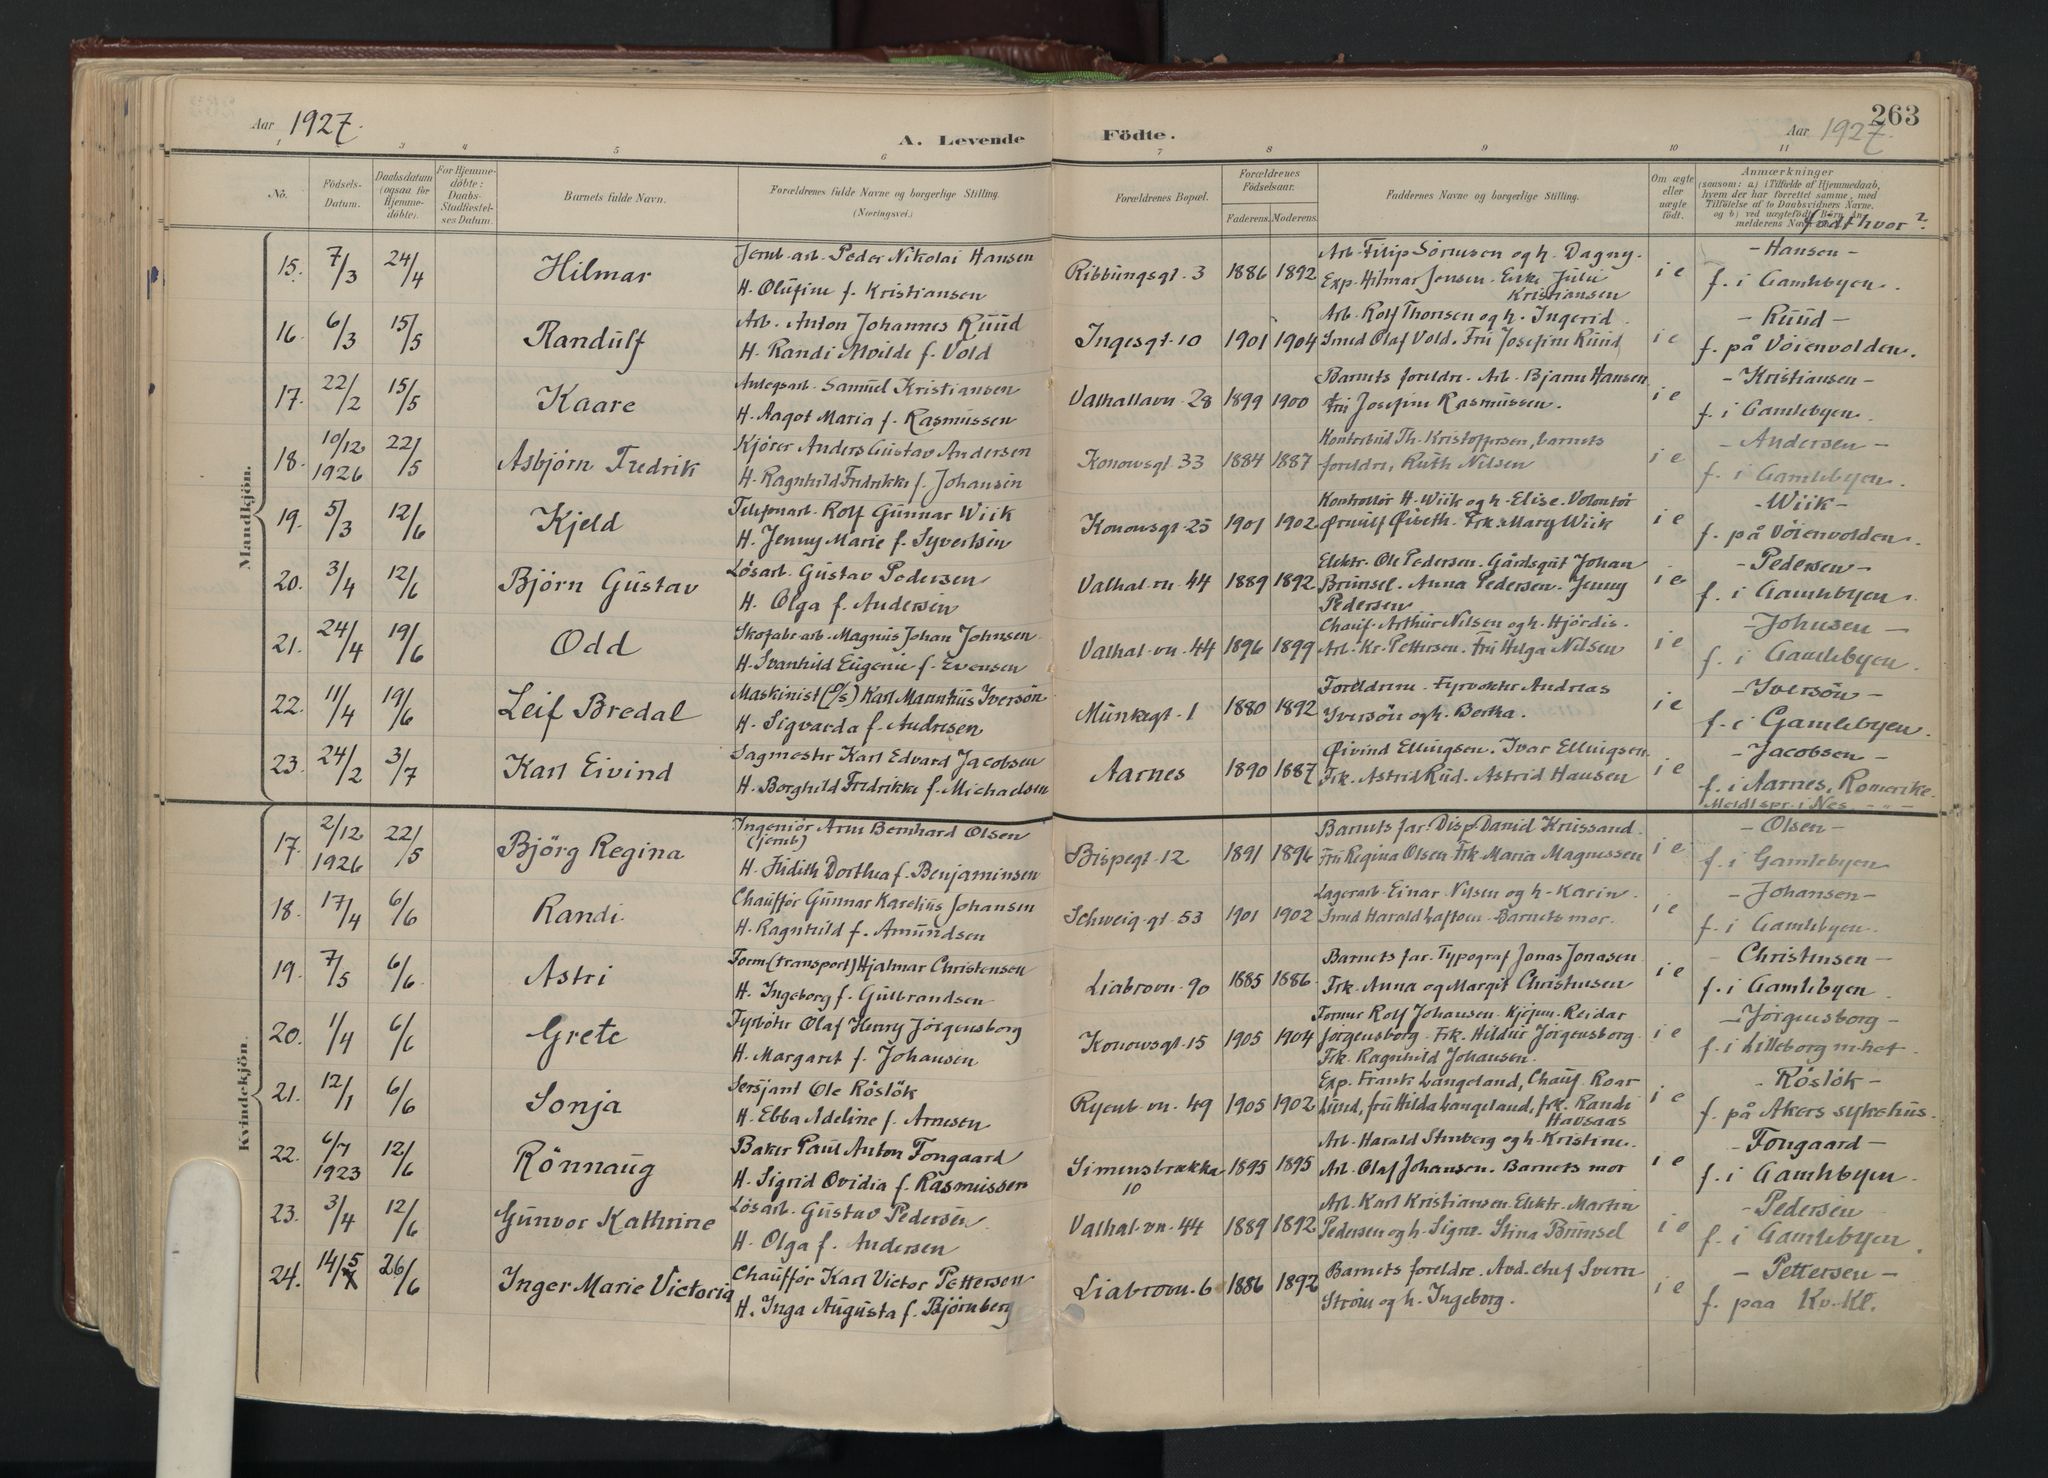 263
Aar 1927.
A. Levende
Födte.
Aar 1927.
1 3 4 5 6 7 8 9 10 11
No.
Födsels-
Datum.
Daabsdatum
(ogsaa for
Hjemme-
döbte).
For Hjemme-
döbte:
Daabs-
Stadfæstel-
ses Datum.
Barnets fulde Navn.
Forældrenes fulde Navne og borgerlige Stilling.
(Næringsvei.)
Forældrenes Bopæl.
Forældrenes
Födselsaar.
Faderens. Moderens.
Faddernes Navne og borgerlige Stilling.
Om ægte
eller
uægte
födt.
Anmærkninger
(saasom: a) i Tilfælde af Hjemmedaab,
hvem der har forrettet samme, med
Tilföielse af to Daabsvidners Navne,
og b) ved uægtefödt Börn An-
melderens Navn
född hvor?
Mandkjön.
15. 7/3 24/4 Hilmar
Jernb. arb. Peder Nikolai Hansen
H. Olufine f. Kristiansen
Ribbungsgt. 3 1886 1892
Arb. Filip Sörensen og h. Dagny.
Exp. Hilmar Jensen. Enke Julie
Kristiansen
i e
- Hansen -
f. i Gamlebyen.
16. 6/3 15/5 Randulf
Arb. Anton Johannes Ruud
H. Randi Molde f. Vold
Ingesgt. 10 1901 1904
Arb. Rolf Thonsen og h. Ingerid.
Smed Olaf Vold. Fru Josefine Ruud
i e
- Ruud -
f. på Voienvolden.
17. 22/2 15/5 Kaare
Anlegsarb. Samuel Kristiansen
H. Aagot Maria f. Rasmussen
Valhallavn. 28 1899 1900
Barnets foreldre. Arb. Bjarne Hansen
Fru Josefine Rasmussen.
i e
- Kristiansen -
f. i Gamlebyen.
18. 10/12 1926 22/5 Asbjörn Fredrik
Kjörer Anders Gustav Andersen
H. Ragnhild Fredrikke f. Johansen
Konowsgt. 33 1884 1887
Kontorbud Th. Kristoffersen, barnets
foreldre, Ruth Nilsen
i e
- Andersen -
f. i Gamlebyen.
19. 5/3 12/6 Kjeld
Telefonarb. Rolf Gunnar Wiik
H. Jenny Marie f. Syvertsen
Konowsgt. 25 1901 1902
Kontrollör H. Wiik og h. Elise. Volontör
Ørnulf Øiseth. Frk. Mary Wiik
i e
- Wiik -
f. på Voienvolden.
20. 3/4 12/6 Björn Gustav
Lösarb. Gustav Pedersen
H. Olga f. Andersen
Valhal. vn. 44 1889 1892
Elektr. Ole Pedersen. Gårdsgut Johan
Brunsel. Anna Pedersen. Jenny
Pedersen
i e
- Pedersen -
f. i Gamlebyen.
21. 24/4 19/6 Odd
Skofabr. arb. Magnus Johan Johnsen
H. Svanhild Eugenie f. Evensen
Valhal. vn. 44 1896 1899
Chauf. Arthur Nilsen og h. Hjördis.
Arb. Kr. Pettersen. Fru Helga Nilsen
i e
- Johnsen -
f. i Gamlebyen.
22. 11/4 19/6 Leif Bredal
Maskinist (D/S) Karl Manthius Iversön
H. Sigvarda f. Andresen
Munkegt. 1 1880 1892
Foreldrene. Fyrvokter Andreas
Iversön og h. Bertha.
i e
- Iversön -
f. i Gamlebyen.
23. 24/2 3/7 Karl Eivind
Sagmester Karl Edvard Jacobsen
H. Borghild Fredrikke f. Michaelsen
Aarnes 1890 1887
Øivind Ellingsen. Ivar Ellingsen
Frk. Astrid Rud. Astrid Hansen
i e
- Jacobsen -
f. i Aarnes, Romerike.
Meldt spr. i Nes.
Kvindekjön.
17. 2/12 1926 22/5 Björg Regina
Ingeniör Arne Bernhard Olsen
(jernb)
H. Judith Dorthea f. Benjaminsen
Bispegt. 12 1891 1896
Barnets far. Disp. David Krussand.
Fru Regina Olsen. Frk. Maria Magnussen
i e
- Olsen -
f. i Gamlebyen
18. 17/4 6/6 Randi.
Chauffør Gunnar Karelius Johansen
H. Ragnhild f. Amundsen
Schweig. gt. 53 1901 1902
Lagerarb. Einar Nilsen og h. Karin.
Smed Harald Loftoen. Barnets mor.
i e
- Johansen -
f. i Gamlebyen.
19. 7/5 6/6 Astri
Form. (transport) Hjalmar Christensen
H. Ingeborg f. Gulbrandsen
Liabrovn. 90 1885 1886
Barnets far. Typograf Jonas Jonasen
Frk. Anna og Margit Christensen
i e
- Christensen -
f. i Gamlebyen.
20. 1/4 6/6 Grete
Fyrböter Olaf Henry Jörgensborg
H. Margaret f. Johansen
Konowsgt. 15 1905 1904
Former Rolf Johansen. Kjøpm. Reidar
Jørgensborg. Frk. Hildur Jørgensborg
Frk. Ragnhild Johansen.
i e
- Jörgensborg -
f. i Lilleborg m.het.
21. 12/1 6/6 Sonja
Sersjant Ole Röslök
H. Ebba Adeline f. Arnesen
Ryenb. vn. 49 1905 1902
Exp. Frank Langeland, Chauf. Roar
Lund, fru Hilda Langeland, frk. Randi
Havsaas
i e
- Röslök -
f. på Akers sykehus.
22. 6/7 1923 12/6 Rönnaug
Baker Paul Anton Fongaard
H. Sigrid Ovidia f. Rasmussen
Simensbrækka
10 1895 1895
Arb. Harald Stenberg og h. Kristine.
Arb. Olaf Johansen. Barnets mor
i e
- Fongaard -
f. i Gamlebyen.
23. 3/4 12/6 Gunvor Kathrine
Lösarb. Gustav Pedersen
H. Olga f. Andersen
Valhal. vn. 44 1889 1892
Arb. Karl Kristiansen. Elektr. Martin
Pedersen og h. Signe. Stina Brunsel
i e
- Pedersen
f. i Gamlebyen.
24. 14/5 26/6 Inger Marie Victoria
Chauffør Karl Victor Pettersen
H. Inga Augusta f. Björnberg
Liabrovn. 6 1886 1892
Barnets foreldre. Avd. chef Sverre
Ström og h. Ingeborg.
i e
- Pettersen -
f. paa Kv. Kl.